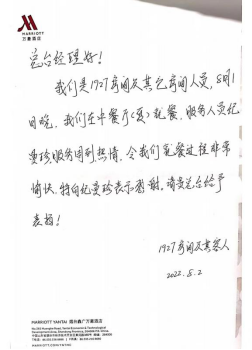 MARRIOTT
万豪酒店
总台经理好!
我们是1927房间及其它房间人员,5月1
日晚,我们在中餐厅(夏)就餐,服务人员纪
曼玲服务周到热情,令我们就餐过程非常
愉快,特向纪曼玲表示感谢,请贵总台给予
表扬!
1927房间及其客人
2022.5.2
MARRIOTT YANTAI 烟台鑫广万豪酒店